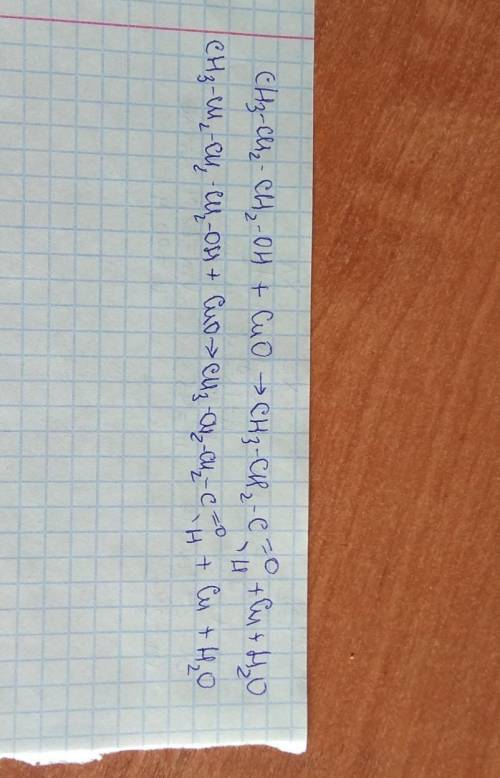 CH3-CH2-CH2-OH + CuO → CH3-CH2-C=O-H + Cu + H2O
CH3-CH2-CH2-CH2-OH + CuO → CH3-CH2-CH2-C=O-H + Cu + H2O